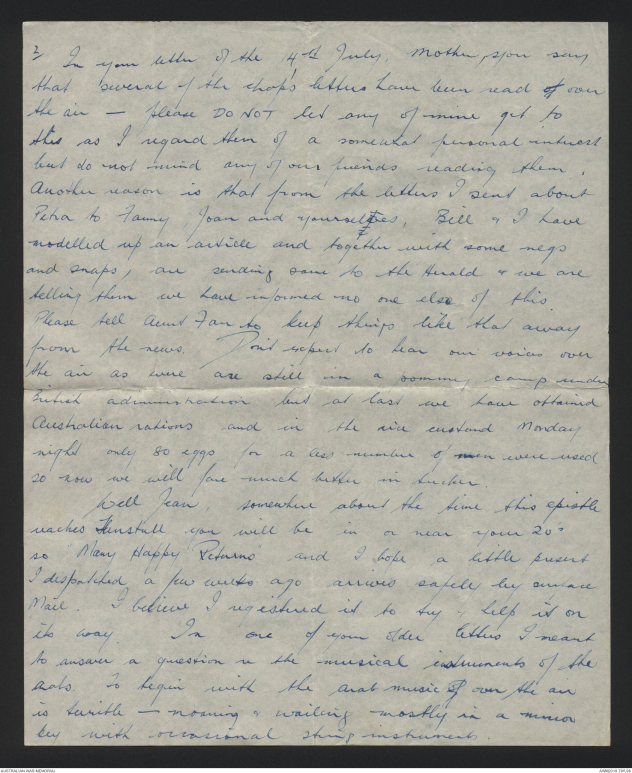 2 In your letter of the 14th July, Mother, you say
that several of the chaps letters have been read of over
the air — please DO NOT let any of mine get to
this as I regard them of a somewhat personal interest
but do not mind any of our friends reading them.
Another reason is that from the letters I sent about
Petra to Fanny, Joan and yourselves, Bill & I have
modelled up an article and together with some negs
and snaps, are sending same to the Herald & we are
telling them we have informed no one else of this
Please tell Aunt Fan to keep things like that away
from the news. Don't expect to hear our voices over
the air as were are still in a pommy camp under
British administration but at last we have obtained
Australian rations and in the custard Monday
night only 80 eggs for a less number of men were used
so now we will fare much better in tucker.
Well Jean, somewhere about the time this epistle
reaches Tunstall you will be in or near your 20s
so "Many Happy Returns" and I hope a little present
I despatched a few weeks ago arrives safely by surface
Mail. I believe I registered it to try & help it on
its way. In one of your older letters I meant
to answer a question re the musical instruments of the
arabs. To begin with the arab music of over the air
is terrible — moaning & wailing mostly in a minor
key with occasional string instruments.
AUSTRALIAN WAR MEMORIAL